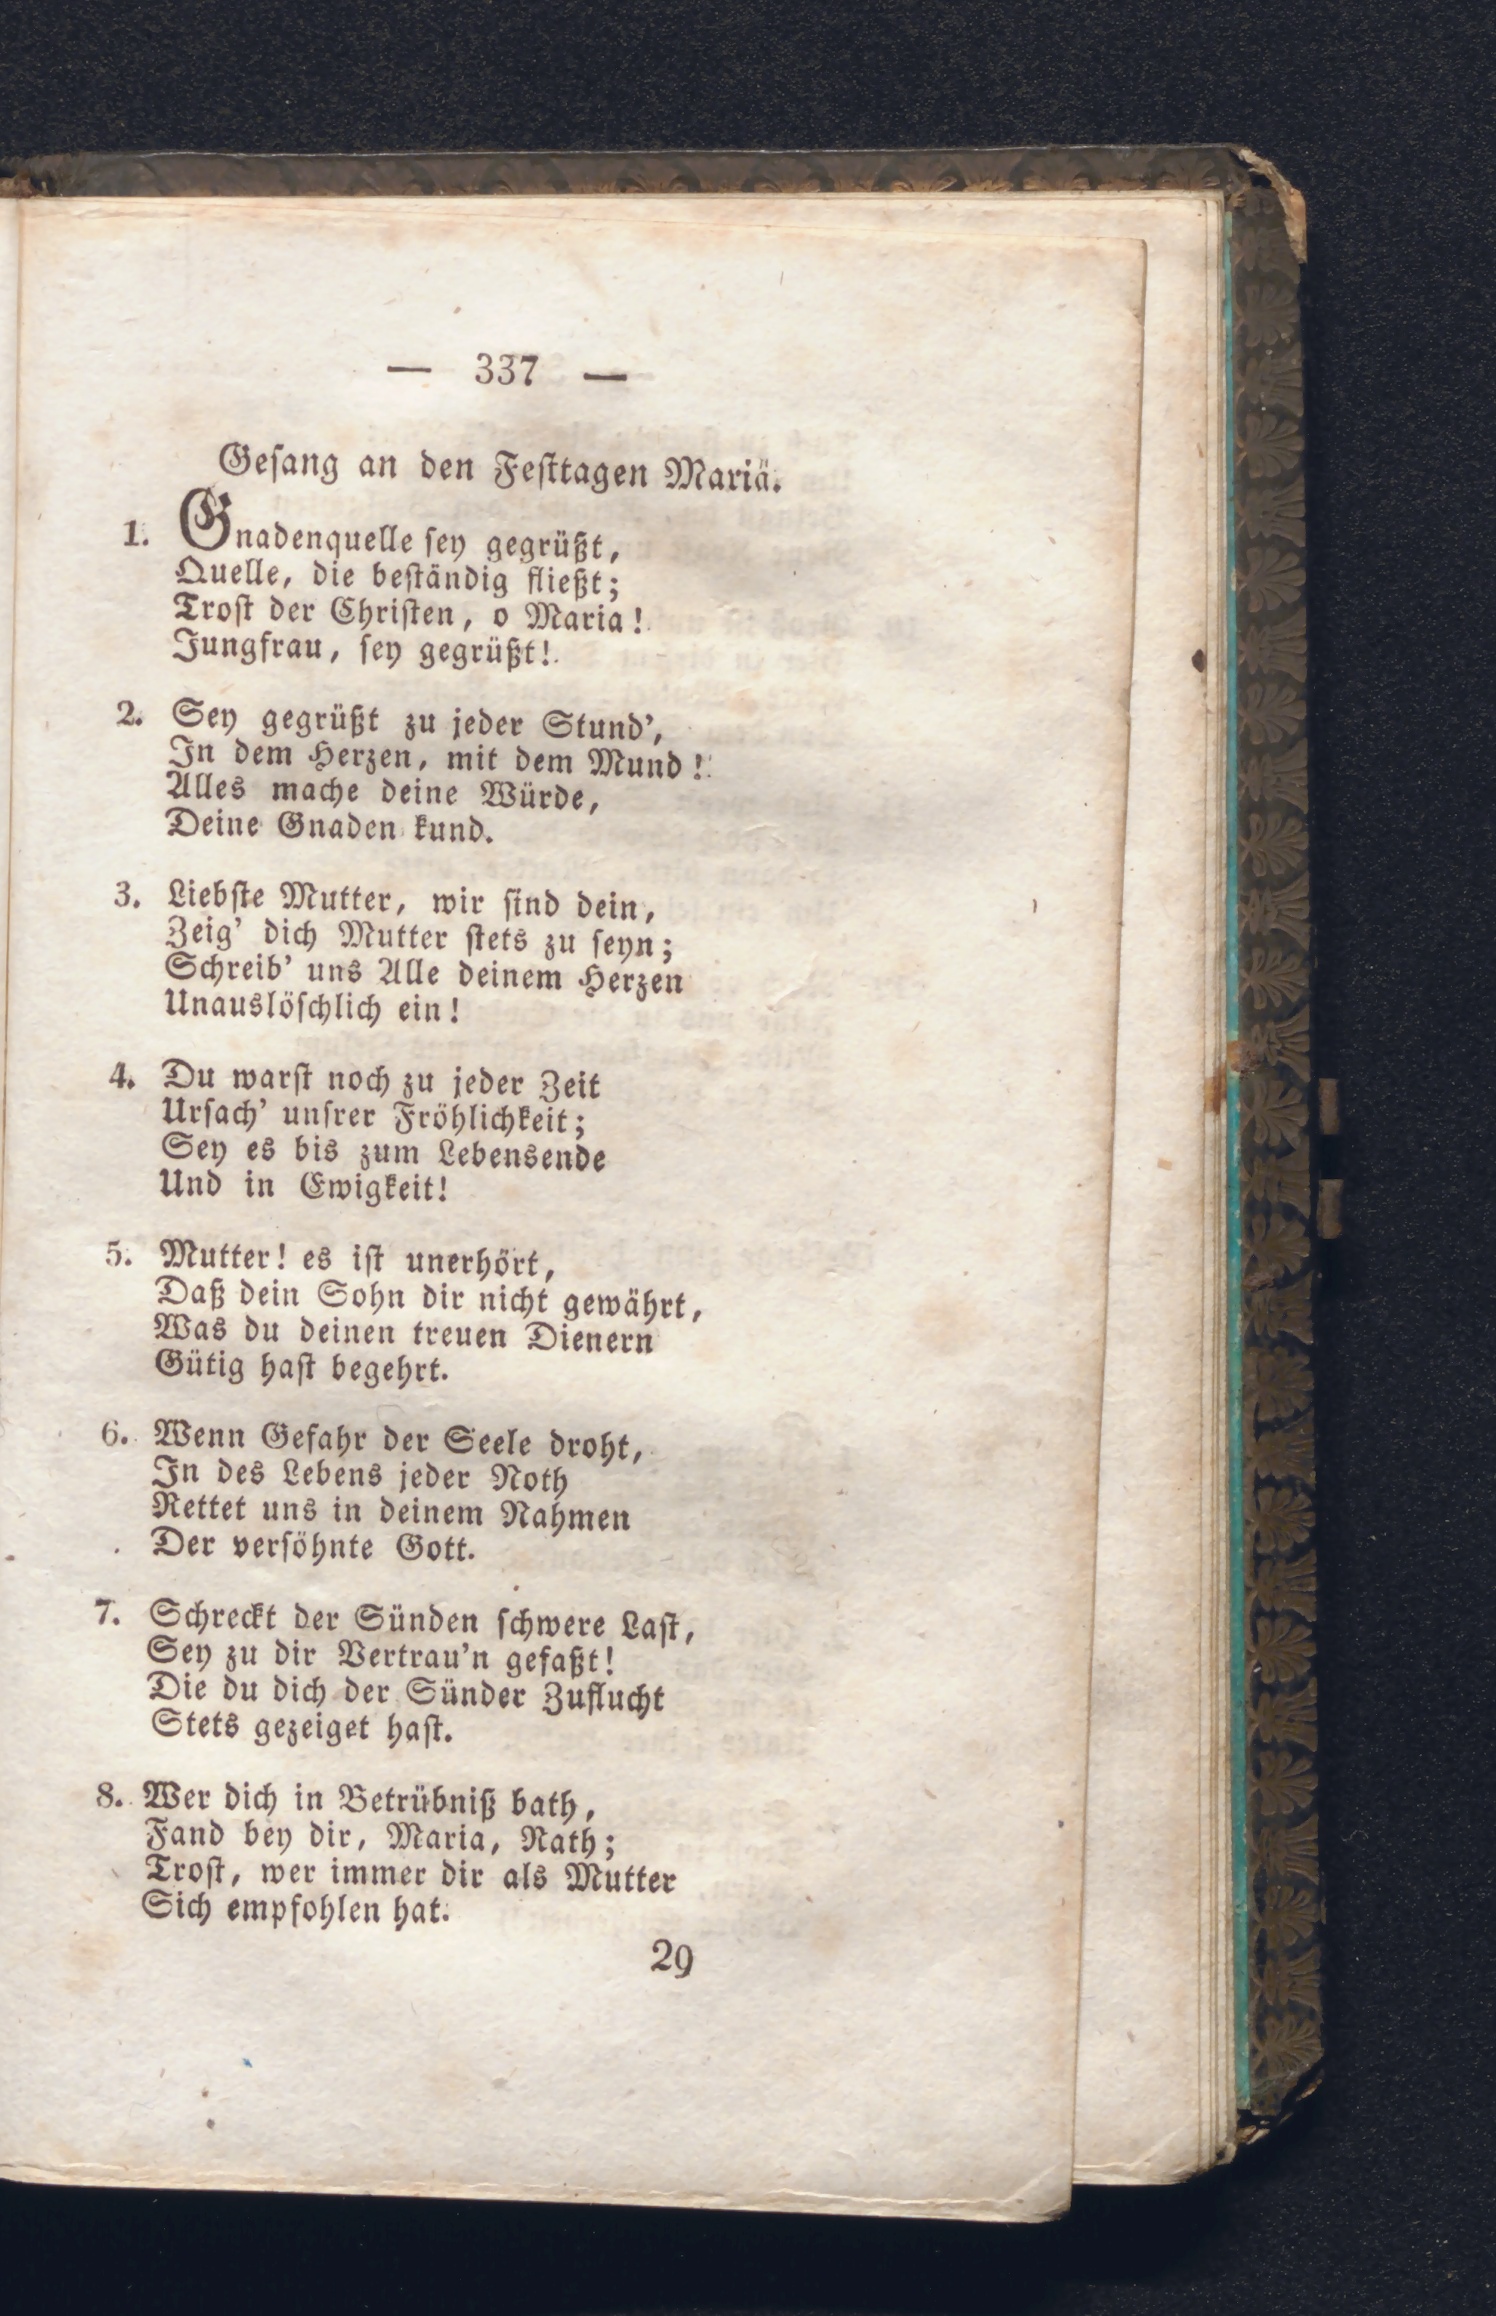 — 337 —
Gesang an den Festtagen Mariä.
1. Gnadenquelle sey gegrüßt,
Quelle, die beständig fließt;
Trost der Christen, o Maria!
Jungfrau, sey gegrüßt!
2. Sey gegrüßt zu jeder Stund',
In dem Herzen, mit dem Mund!
Alles mache deine Würde,
Deine Gnaden kund.
3. Liebste Mutter, wir sind dein,
Zeig' dich Mutter stets zu seyn;
Schreib' uns Alle deinem Herzen
Unauslöschlich ein!
4. Du warst noch zu jeder Zeit
Ursach' unsrer Fröhlichkeit;
Sey es bis zum Lebensende
Und in Ewigkeit!
5. Mutter! es ist unerhört,
Daß dein Sohn dir nicht gewährt,
Was du deinen treuen Dienern
Gütig hast begehrt.
6. Wenn Gefahr der Seele droht,
In des Lebens jeder Noth
Rettet uns in deinem Nahmen
Der versöhnte Gott.
7. Schreckt der Sünden schwere Last,
Sey zu dir Vertrau'n gefaßt!
Die du dich der Sünder Zuflucht
Stets gezeiget hast.
8. Wer dich in Betrübniß bath,
Fand bey dir, Maria, Rath;
Trost, wer immer dir als Mutter
Sich empfohlen hat.
29